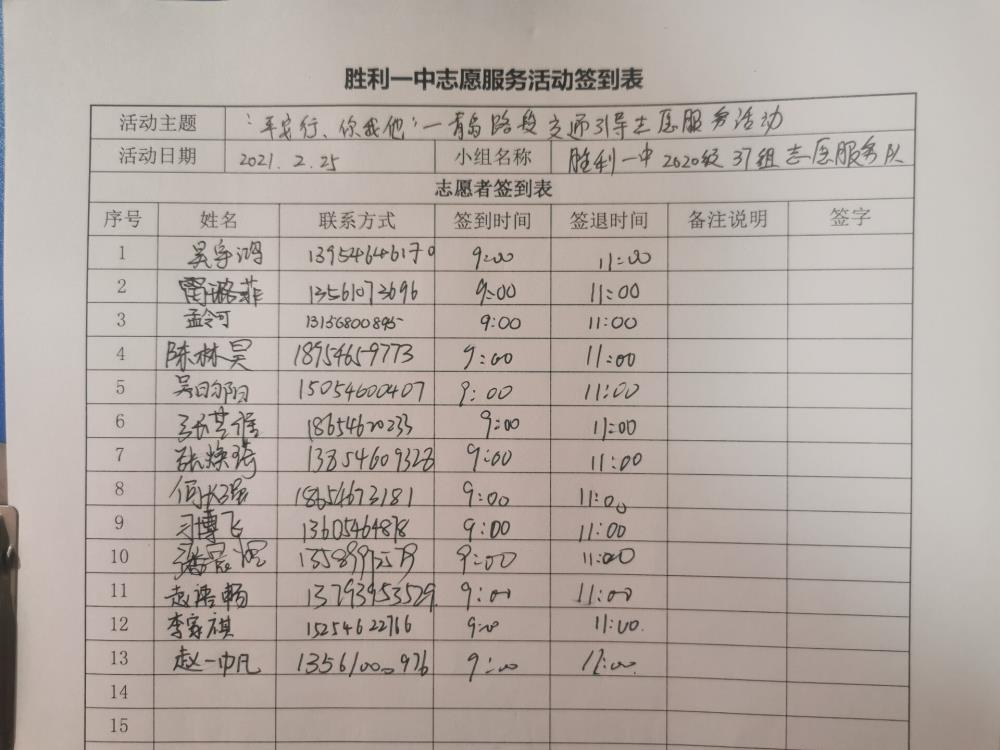 胜利一中志愿服务活动签到表
活动主题 “平安行、你我他”—青岛路段交通引导志愿服务活动
活动日期 2021.2.25 小组名称 胜利一中2020级37组志愿服务队
志愿者签到表
序号 姓名 联系方式 签到时间 签退时间 备注说明 签字
1 吴宇鸿 13954646170 9:00 11:00
2 雷璐菲 13561073696 9:00 11:00
3 孟令可 13156800895 9:00 11:00
4 陈林昊 18954659773 9:00 11:00
5 15054600407 9:00 11:00
6 18654620233 9:00 11:00
7 张焕琦 13854609328 9:00 11:00
8 18654673181 9:00 11:00
9 刁博飞 13605464878 9:00 11:00
10 9:00 11:00
11 赵浩畅 13793953529 9:00 11:00
12 李家祺 15254622766 9:00 11:00.
13 赵一帆 13561000976 9:00 11:00
14
15